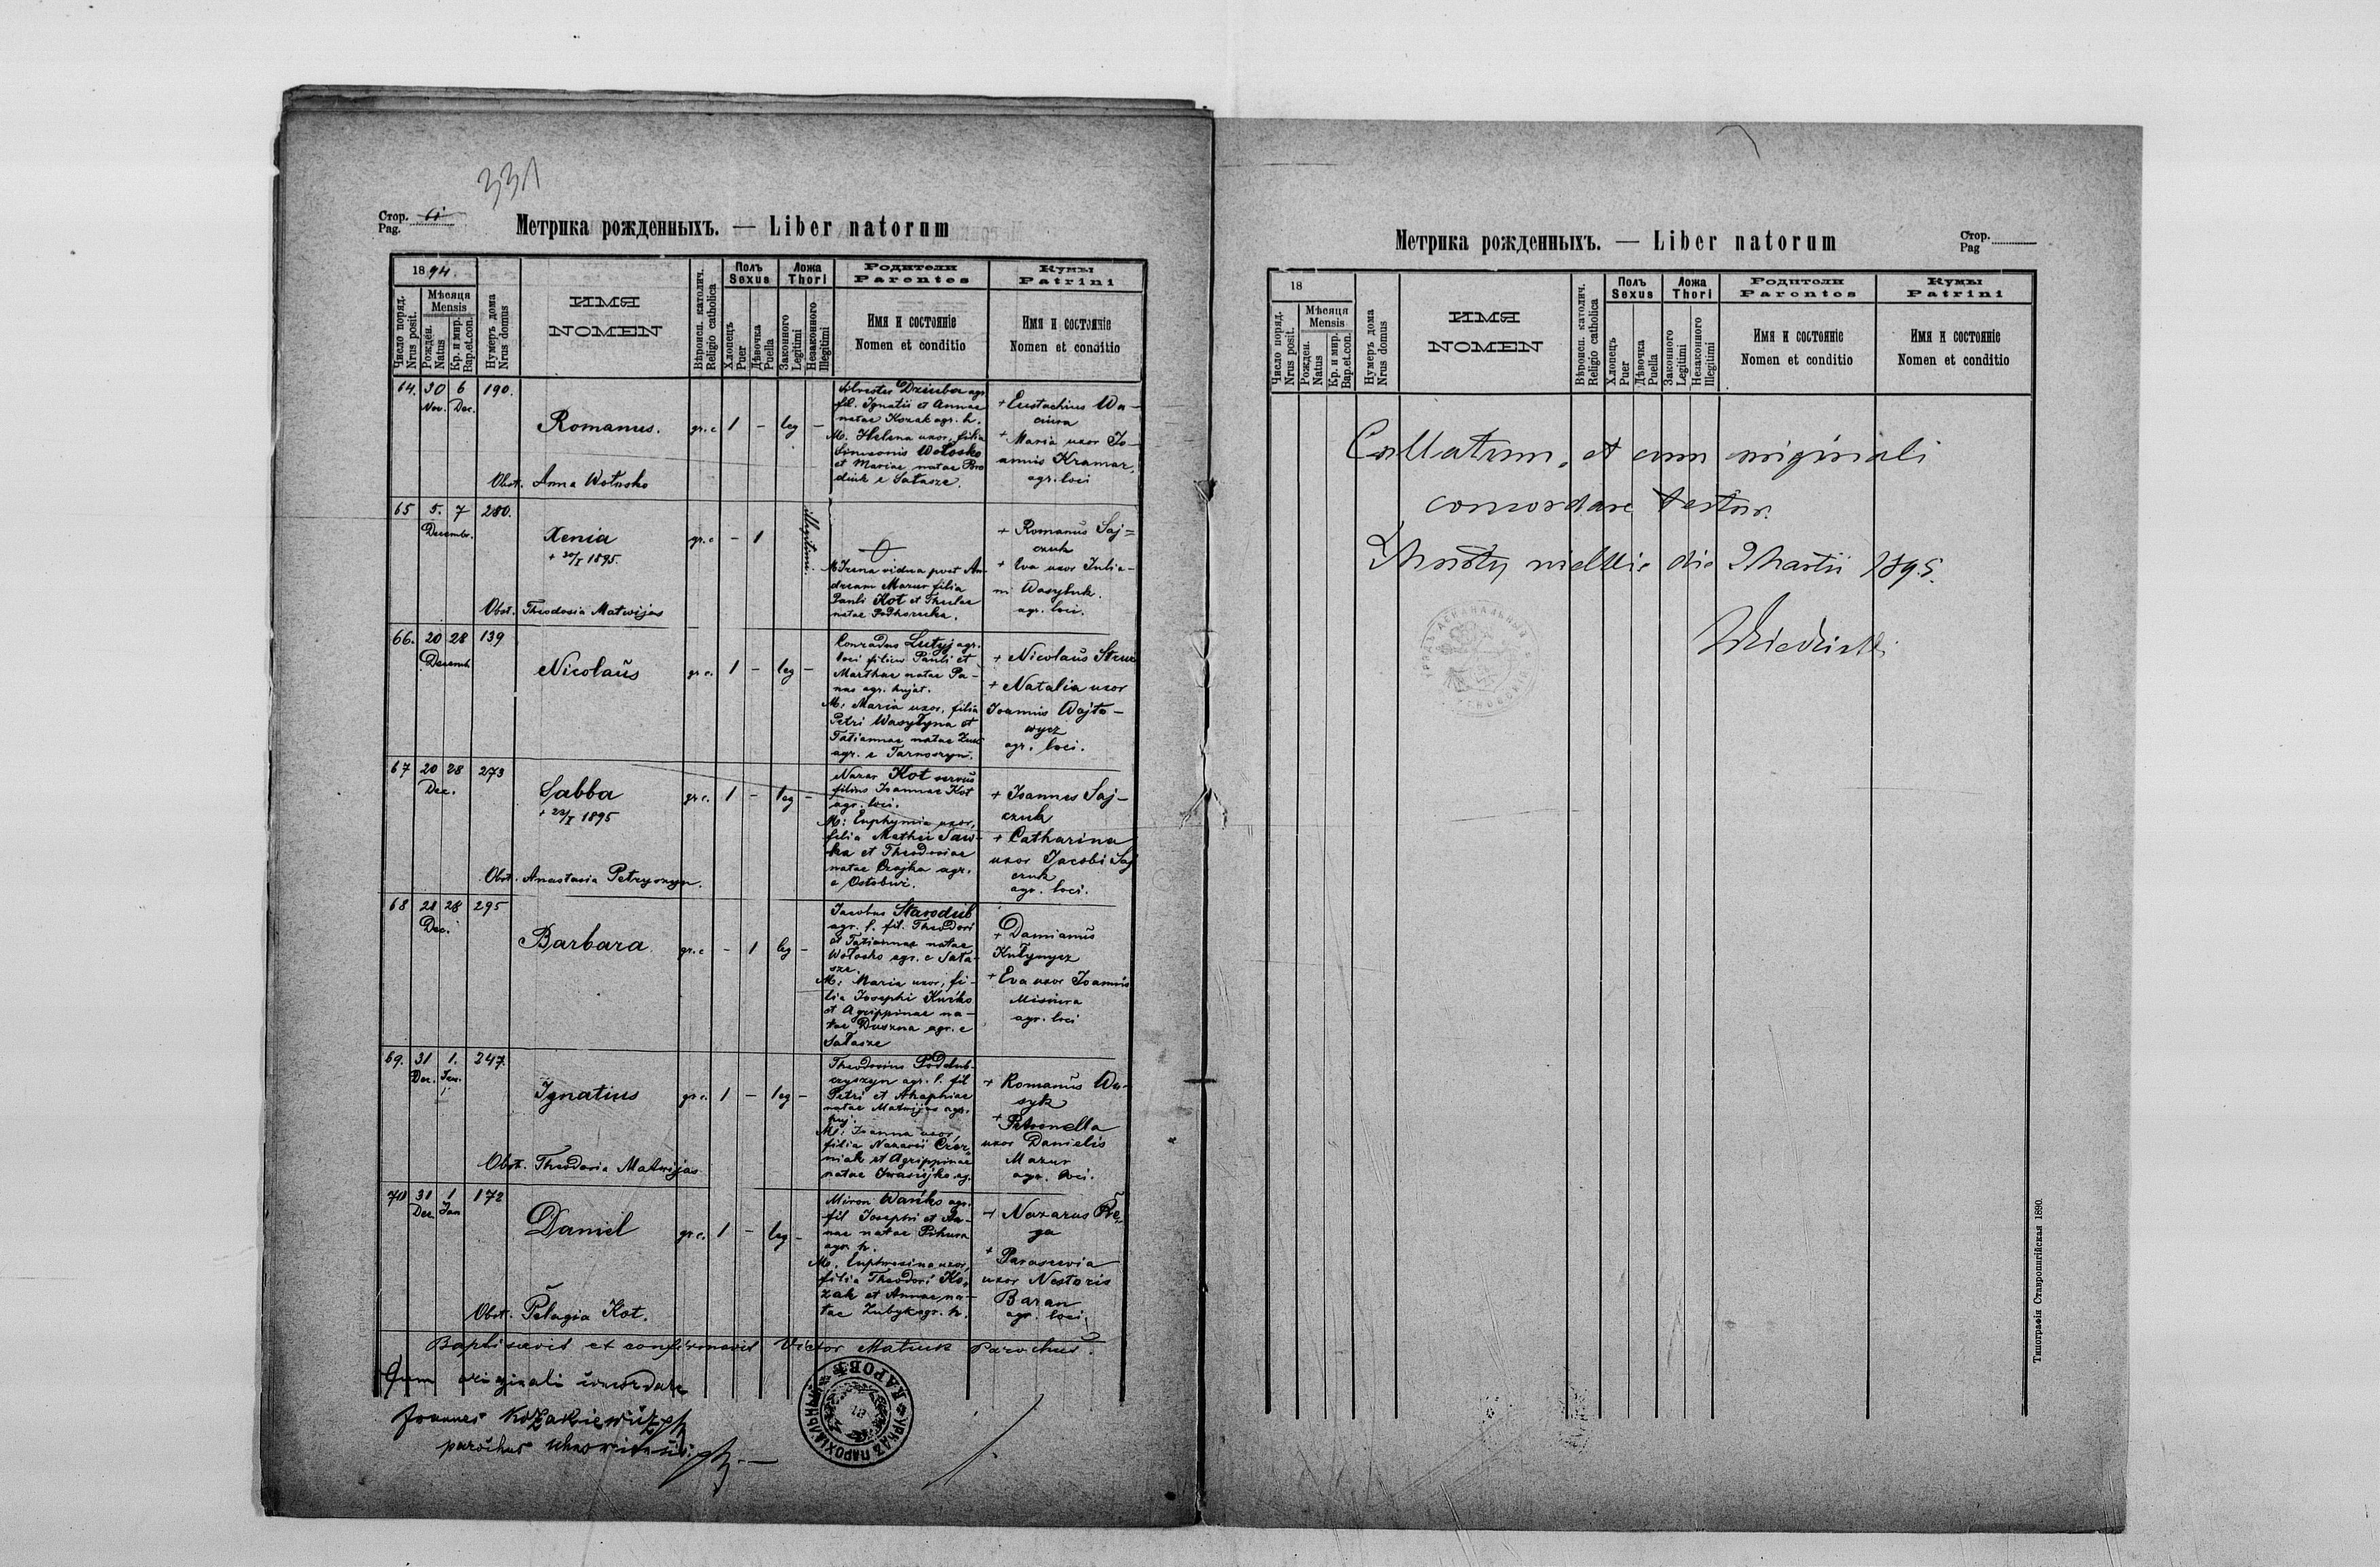 331
Стор. 61
Pag.
Метрика рожденныхъ. — Liber natorum
1894.
Число поряд.
Nrus posit.
Мѣсяця
Mensis
Рожден.
Natus
Кр. и мир.
Bap.et.con.
Нумеръ дома
Nrus domus
ИМЯ
NOMEN
Вѣроисп. католич.
Religio catholica
Полъ
Sexus
Хлопецъ
Puer
Дѣвочка
Puella
Ложа
Thori
Законного
Legitimi
Незаконного
Illegitimi
Родители
Parentes
Имя и состояніе
Nomen et conditio
Кумы
Patrini
Имя и состояніе
Nomen et conditio
64. 30 6 190.
Nov. Dec.
Romanus. gr. c 1 – leg –
Obst. Anna Wołosko
Silvester Dziuba agr.
fil. Ignatii et Annae
natae Kozak agr. h.
M. Helena uxor, filia
Simeonis Wołosko
et Mariae natae
e Sałasze.
+ Eustachius Wa-
ciura
+ Maria uxor Jo-
annis Kramar,
agr. loci
65 5. 7 280.
Decembr.
Xenia gr. c – 1 illegitimi.
+ 20/I 1895.
Obst. Theodosia Matwijas
M Irena vidua post An-
dream Mazur filia
Pauli Kot et Theclae
natae Podhorecka.
+ Romanus Saj=
czuk
+ Eva uxor Julia-
ni Wasyluk.
agr. loci.
66. 20 28 139
Decemb.
Nicolaus gr. c. 1 – leg –
Conradus Lutyj agr.
loci filius Pauli et
Marthae natae Pa-
nas agr. hujat.
M. Maria uxor, filia
Petri Wasyłyna et
Tatiannae natae
agr. e Tarnoszyn.
+ Nicolaus
+ Natalia uxor
Joannis Wojto-
wycz
agr. loci.
67 20 28 273
Dec.
Sabba gr. c. 1 – leg –
+ 22/I 1895
Obst. Anastasia Petryszyn.
Nazar Kot servus
filius Joannae Kot
agr. loci.
M: Euphymia uxor,
filia Mathei Saw-
ka et Theodosiae
natae Czajka agr.
e Ostobuż.
+ Joannes Saj-
czuk
+ Catharina
uxor Jacobi Saj
czuk
agr. loci.
68 28 28 295
Dec.
Barbara gr. c – 1 leg –
Jacobus Starodub
agr. l. fil. Theodori
et Tatiannae natae
Wołosko agr. e Sała-
sze.
M: Maria uxor, fi-
lia Josephi Kuśko
et Agrippinae na-
tae Duszna agr. e
Sałasze
+ Damianus
Kułynycz
+ Eva uxor Joannis
Misiura
agr. loci
69. 31 1. 247.
Dec. Jan.
Ignatius gr. c. 1 – leg –
Obst. Theodosia Matwijas
Theodosius Poddub-
czyszyn agr. l. fil
Petri et Ahaphiae
natae Matwijas agr.
huj.
M: Joanna uxor,
filia Nazarii Czer-
niak et Agrippinae
natae Iwasijko ag.
+ Romanus Wa-
syk
+ Petronella
uxor Danielis
Mazur
agr. loci.
70 31 1 172
Dec. Jan
Daniel gr. c. 1 – leg –
Obst. Pelagia Kot.
Miron Wańko agr.
fil Josephi et An-
nae natae Pihura
agr. h.
M. Euphrosina uxor,
filia Theodori Ko-
zak et Annae na-
tae Zubyk agr. h.
+ Nazarus
ga
+ Parascevia
uxor Nestoris
Baran
agr. loci.
Baptisavit et confirmavit Victor Matiuk Parochus.
Cum originali concordare
Joannes Kozakiewicz
parochus Uhnoviensis
Метрика рожденныхъ. — Liber natorum
Стор.
Pag
18
Число поряд.
Nrus posit.
Мѣсяця
Mensis
Рожден.
Natus
Кр. и мир.
Bap.et.con.
Нумеръ дома
Nrus domus
ИМЯ
NOMEN
Вѣроисп. католич.
Religio catholica
Полъ
Sexus
Хлопецъ
Puer
Дѣвочка
Puella
Ложа
Thori
Законного
Legitimi
Незаконного
Illegitimi
Родители
Parentes
Имя и состояніе
Nomen et conditio
Кумы
Patrini
Имя и состояніе
Nomen et conditio
Collatum, et cum originali
concordare testor.
die 2 Martii 1895.
Типографія Ставропигійская 1890.